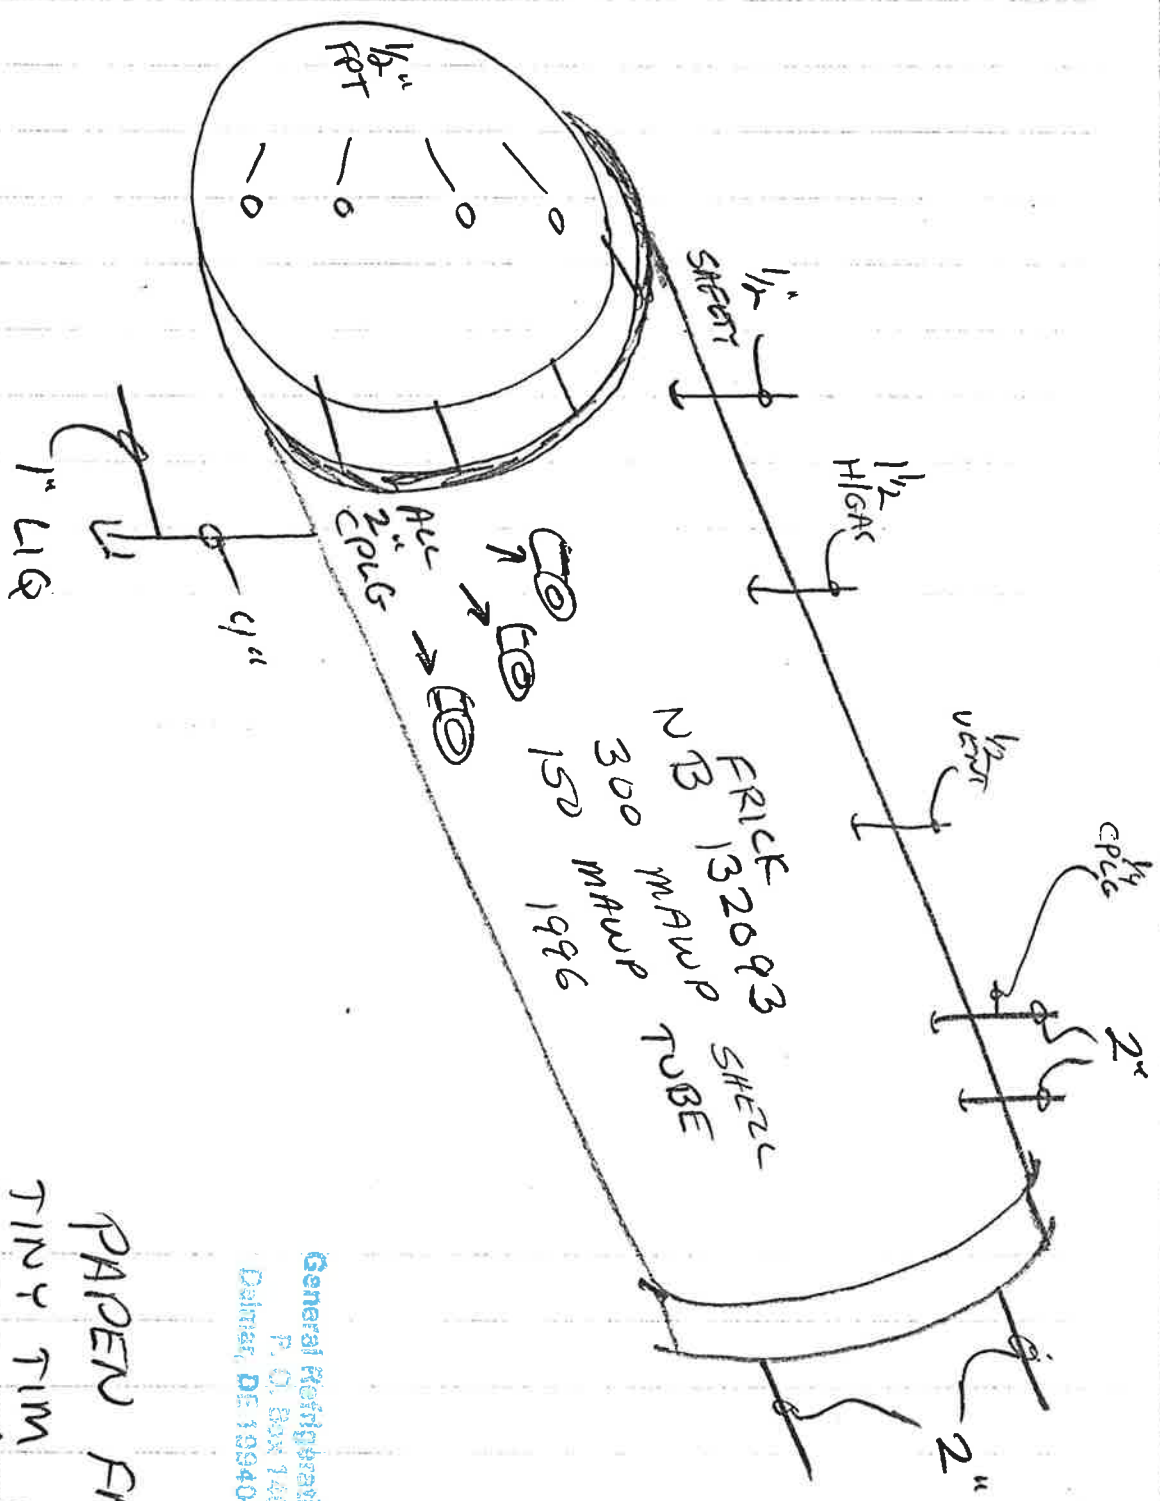 1/2"
FPT
1/2"
SAFETY
1 1/2
H/GAS
1/2
VENT
1/4
CPLG
2"
ALL
2"
CPLG
FRICK
NB 132093
300 MAWP SHELL
150 MAWP TUBE
1996
4"
1" LIQ
2"
General Refrigerat
P. O. Box 140
Delmar, DE 19940
PAPEN
TINY TIM